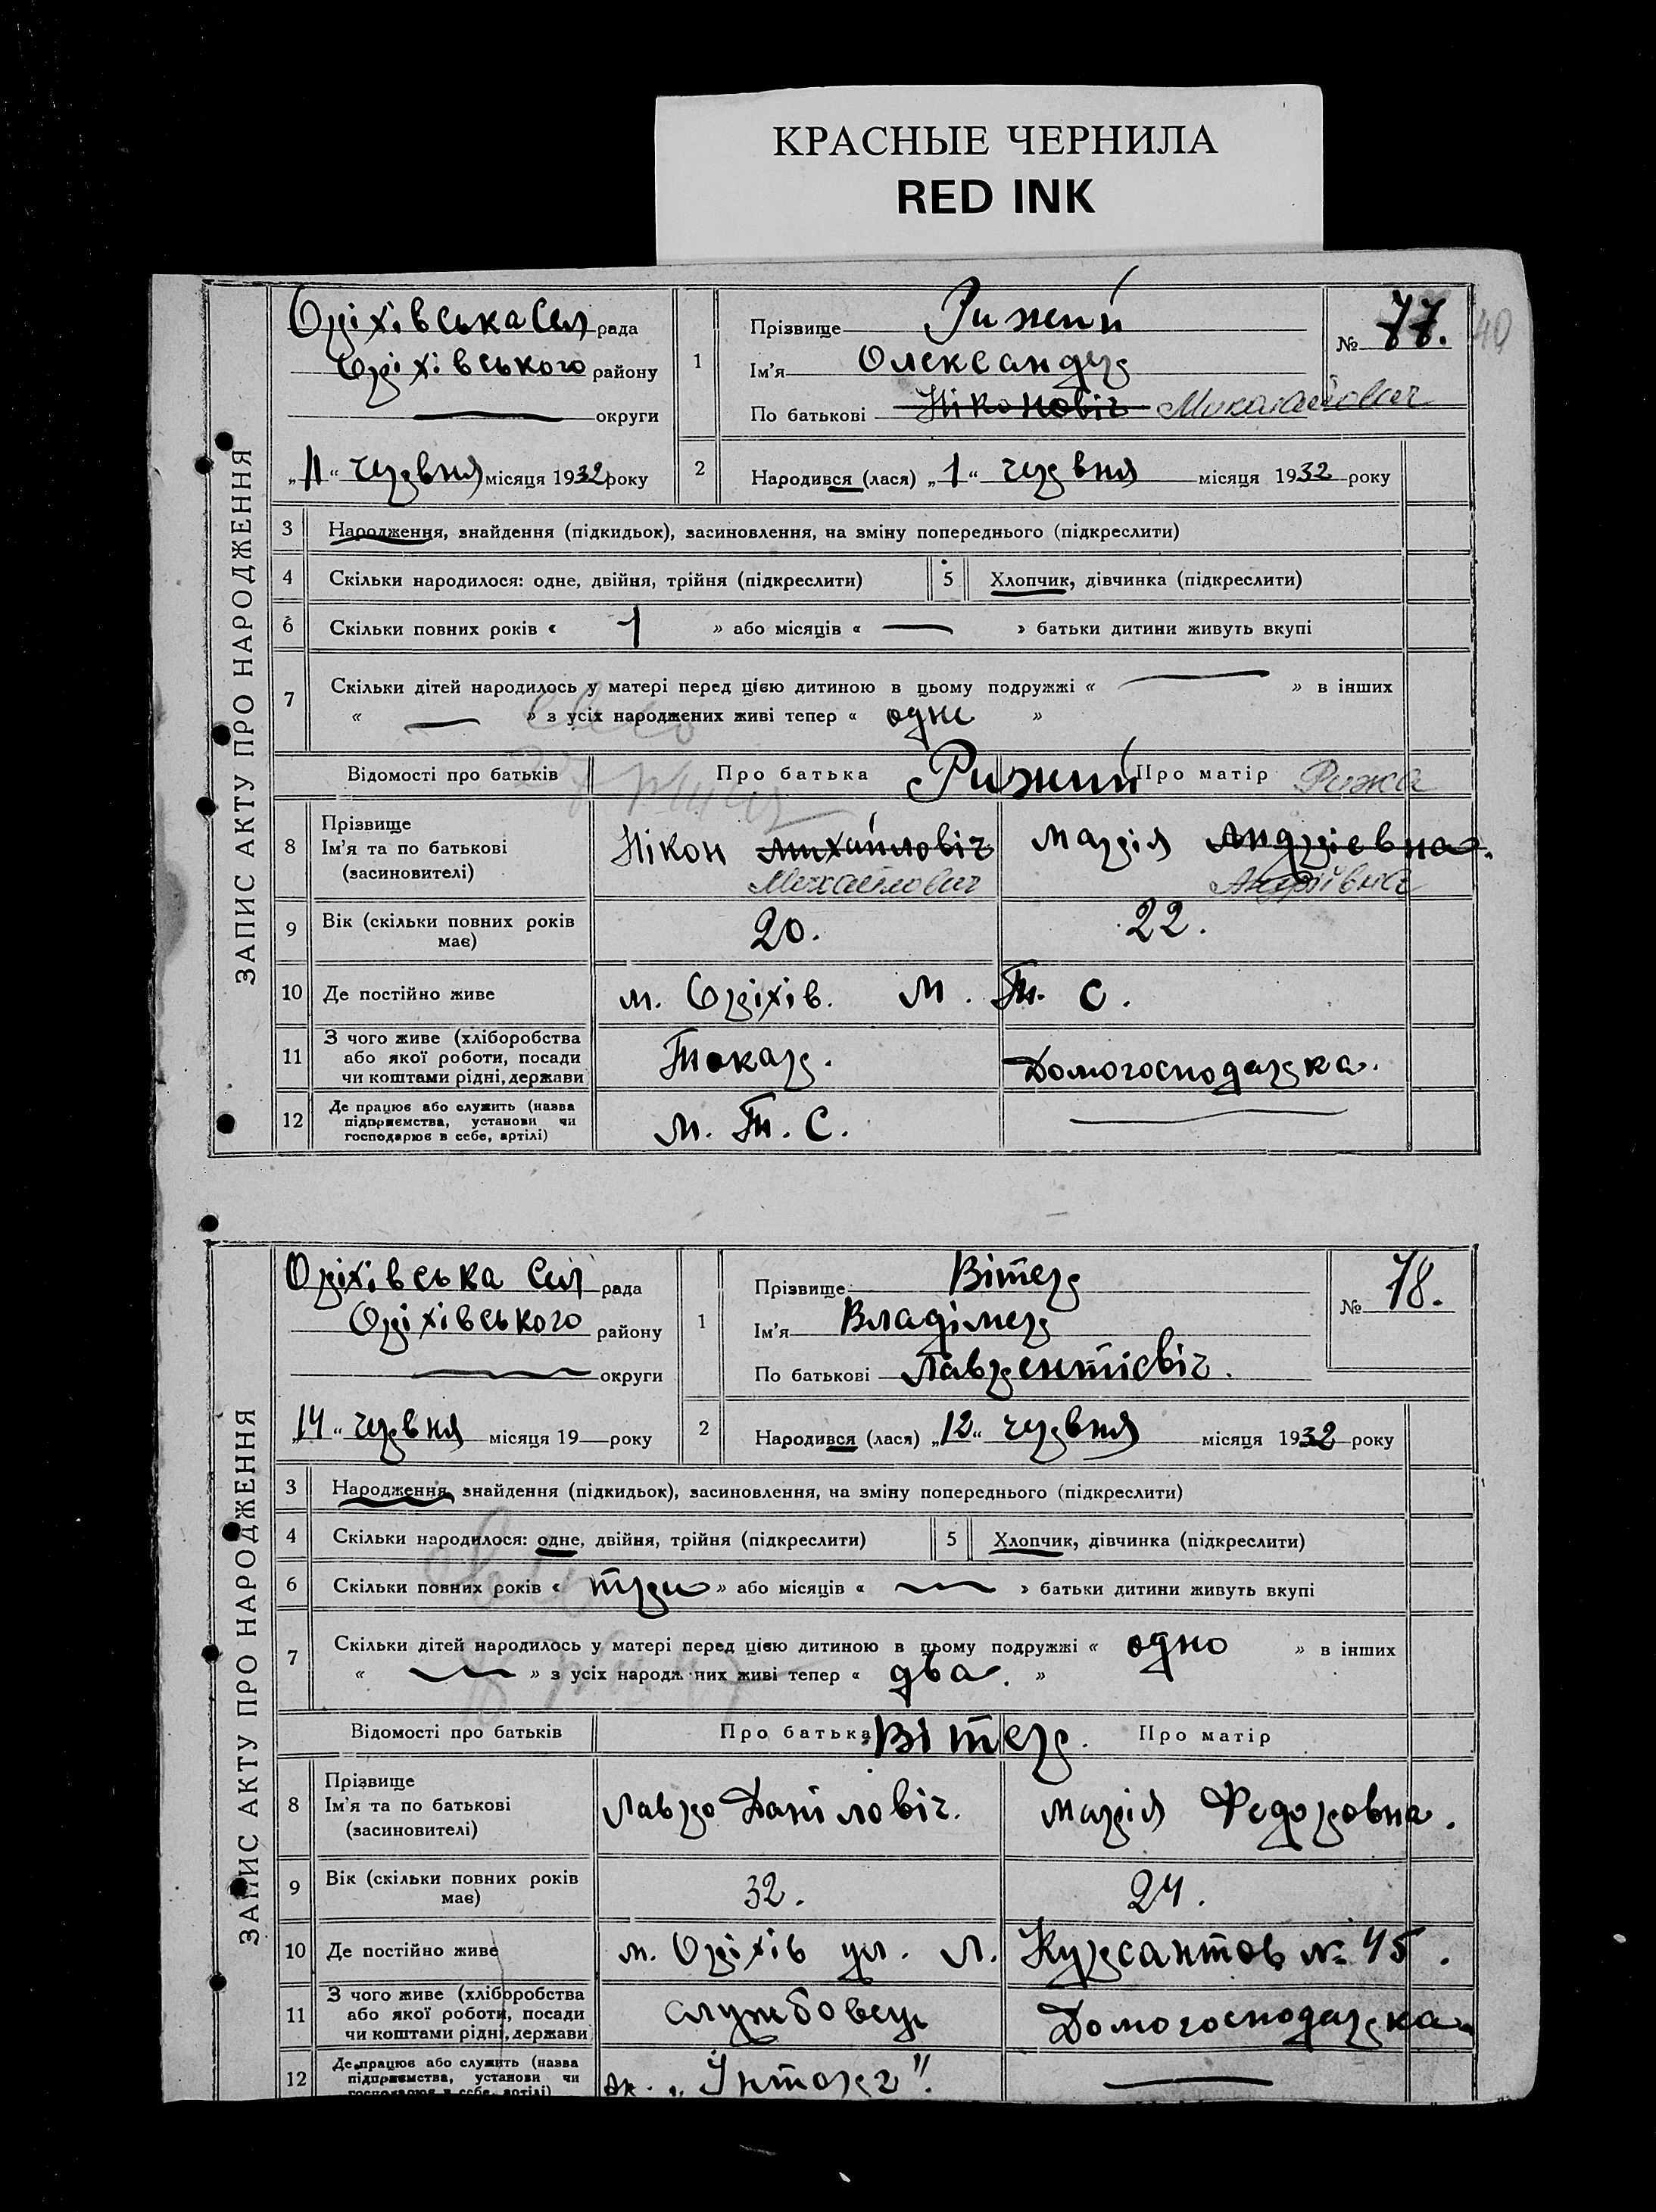 КРАСНЫЕ ЧЕРНИЛА
RED INK
ЗАПИС АКТУ ПРО НАРОДЖЕННЯ
Оріхівська Сел рада
Оріхівського району
округи
„11“ червня місяця 1932 року
1
Прізвище Рижий
Ім'я Олександр
По батькові Ніконовіч
№ 77.
40
2
Народився (лася) „1“ червня місяця 1932 року
3 Народження, знайдення (підкидьок), засиновлення, на зміну попереднього (підкреслити)
4 Скільки народилося: одне, двійня, трійня (підкреслити) 5 Хлопчик, дівчинка (підкреслити)
6 Скільки повних років « 1 » або місяців « — » батьки дитини живуть вкупі
7 Скільки дітей народилось у матері перед цією дитиною в цьому подружжі « — » в інших
« — » з усіх народжених живі тепер « одне »
Відомості про батьків Про батька Рижий Про матір Рижа
8 Прізвище
Ім'я та по батькові
(засиновителі)
Нікон Михайловіч Марія Андрієвна.
Михайлович Андріївна
9 Вік (скільки повних років
має)
20. 22.
10 Де постійно живе м. Оріхів. М. Т. С.
11 З чого живе (хліборобства
або якої роботи, посади
чи коштами рідні, держави
Токар. Домогосподарка.
12 Де працює або служить (назва
підприємства, установи чи
господарює в себе, артілі)
М. Т. С. —
ЗАПИС АКТУ ПРО НАРОДЖЕННЯ
Оріхівська Сел рада
Оріхівського району
округи
„14“ червня місяця 19 — року
1
Прізвище Вітер
Ім'я Владімер
По батькові Лаврентієвіч.
№ 78.
2
Народився (лася) „12“ червня місяця 1932 року
3 Народження, знайдення (підкидьок), засиновлення, на зміну попереднього (підкреслити)
4 Скільки народилося: одне, двійня, трійня (підкреслити) 5 Хлопчик, дівчинка (підкреслити)
6 Скільки повних років « три » або місяців « — » батьки дитини живуть вкупі
7 Скільки дітей народилось у матері перед цією дитиною в цьому подружжі « одно » в інших
« — » з усіх народж них живі тепер « два. »
Відомості про батьків Про батька Вітер. Про матір
8 Прізвище
Ім'я та по батькові
(засиновителі)
Лавро Даніловіч. Марія Федоровна.
9 Вік (скільки повних років
має)
32. 24.
10 Де постійно живе м. Оріхів ул. Л. Курсантов № 45.
11 З чого живе (хліборобства
або якої роботи, посади
чи коштами рідні, держави
службовець Домогосподарка
12 Де працює або служить (назва
підприємства, установи чи
господарює в себе, артілі)
„Інторг". —